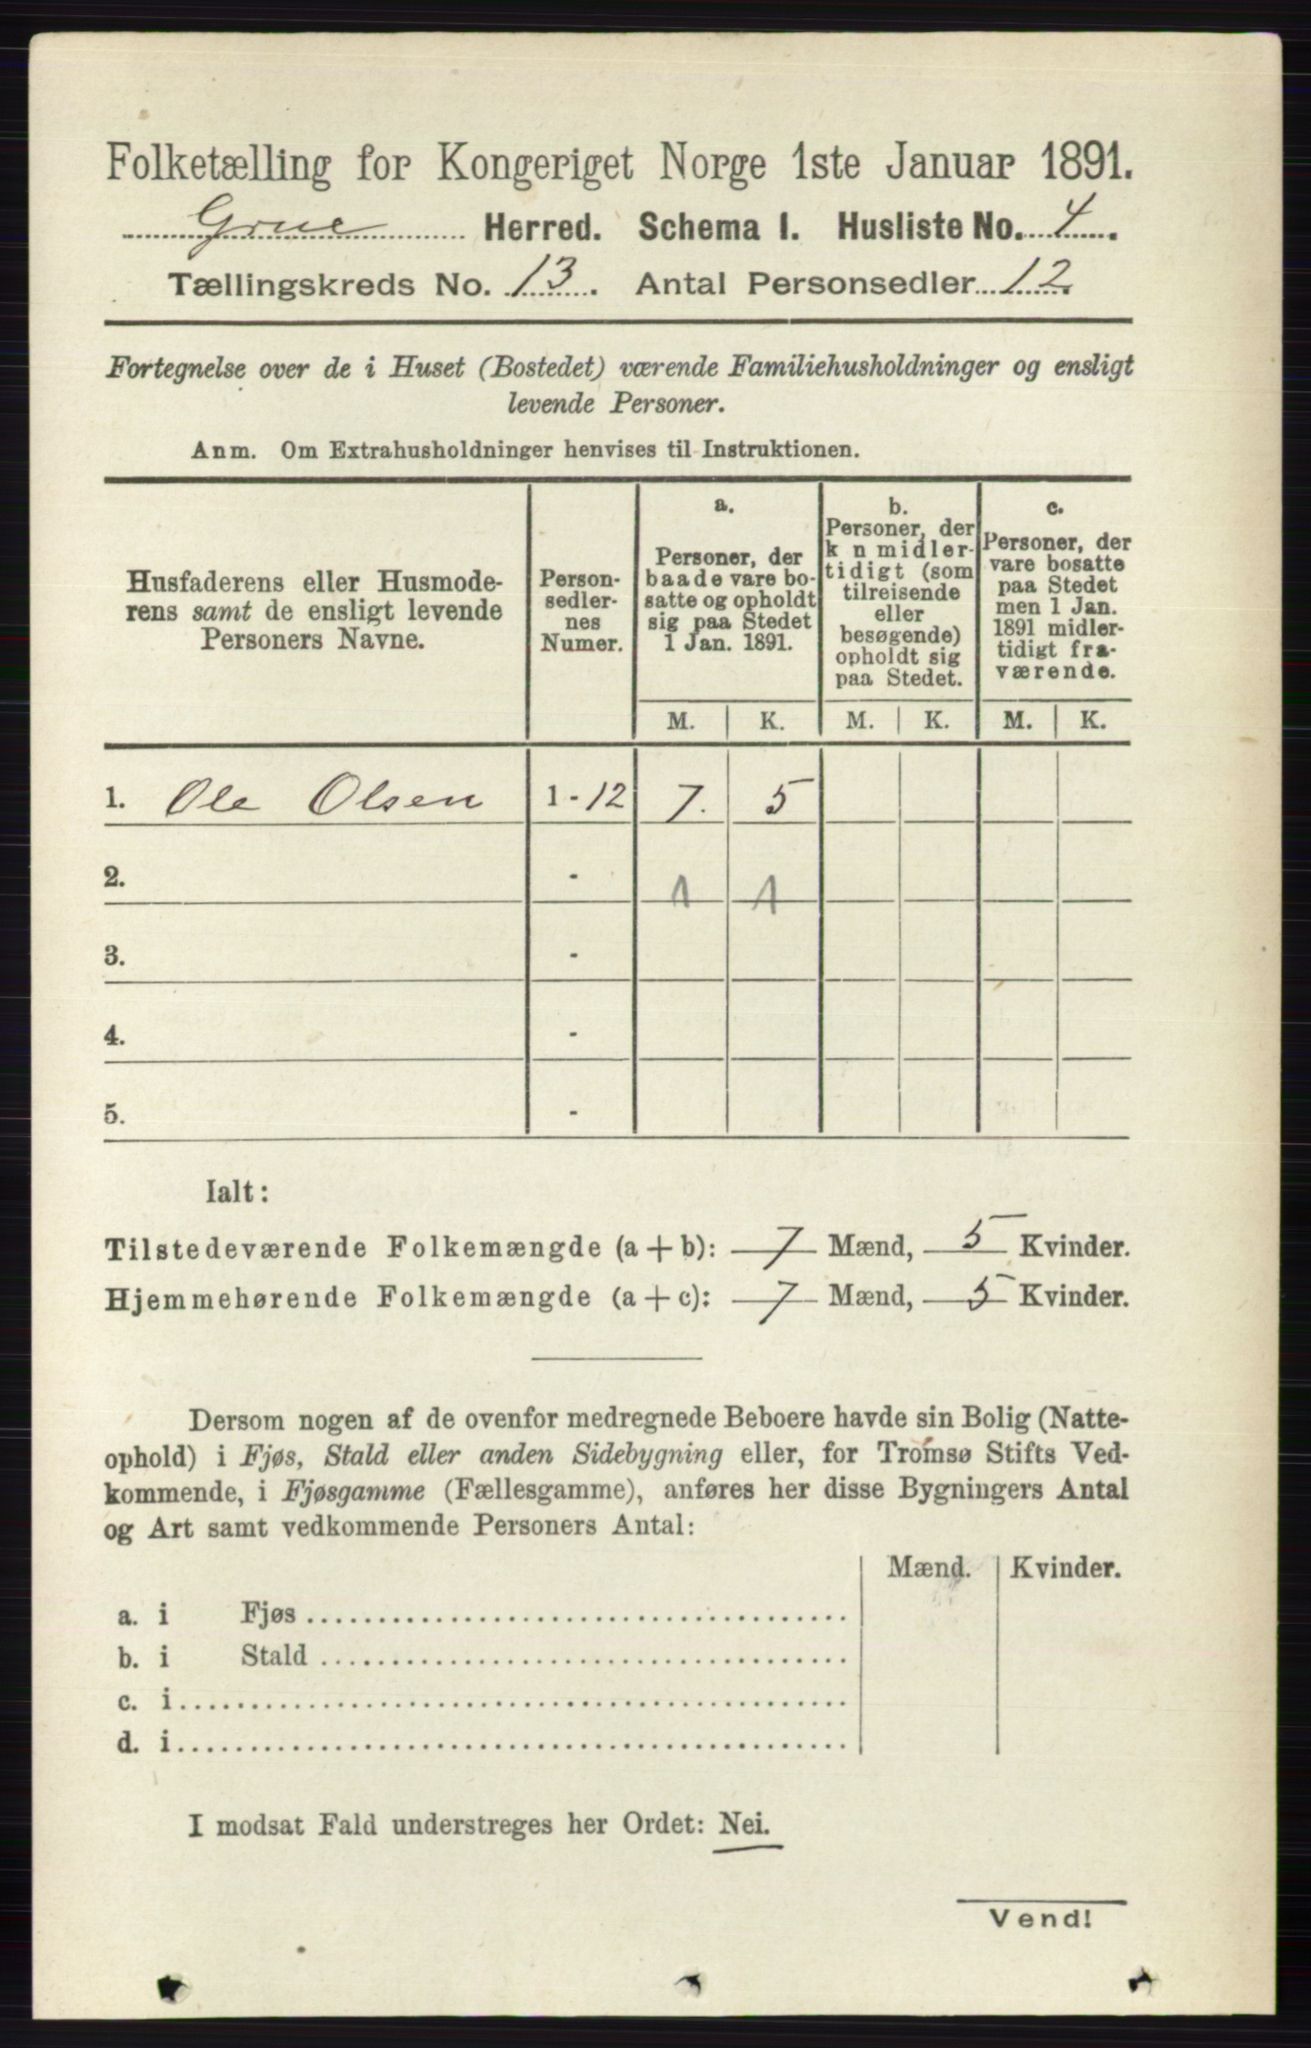 Folketælling for Kongeriget Norge 1ste Januar 1891.
Grue Herred. Schema I. Husliste No. 4.
Tællingskreds No. 13. Antal Personsedler 12.
Fortegnelse over de i Huset (Bostedet) værende Familiehusholdninger og ensligt
levende Personer.
Anm. Om Extrahusholdninger henvises til Instruktionen.
Husfaderens eller Husmode-
rens samt de ensligt levende
Personers Navne.
Person-
sedler-
nes
Numer.
a.
Personer, der
baade vare bo-
satte og opholdt
sig paa Stedet
1 Jan. 1891.
b.
Personer, der
k n midler-
tidigt (som
tilreisende
eller
besøgende)
opholdt sig
paa Stedet.
c.
Personer, der
vare bosatte
paa Stedet
men 1 Jan.
1891 midler-
tidigt fra-
værende.
M. K. M. K. M. K.
1. Ole Olsen 1-12 7. 5
2. - 1 1
3. -
4. -
5. -
Ialt:
Tilstedeværende Folkemængde (a + b): 7 Mænd, 5 Kvinder.
Hjemmehørende Folkemængde (a + c): 7 Mænd, 5 Kvinder.
Dersom nogen af de ovenfor medregnede Beboere havde sin Bolig (Natte-
ophold) i Fjøs, Stald eller anden Sidebygning eller, for Tromsø Stifts Ved-
kommende, i Fjøsgamme (Fællesgamme), anføres her disse Bygningers Antal
og Art samt vedkommende Personers Antal:
Mænd. Kvinder.
a. i Fjøs
b. i Stald
c. i
d. i
I modsat Fald understreges her Ordet: Nei.
Vend!